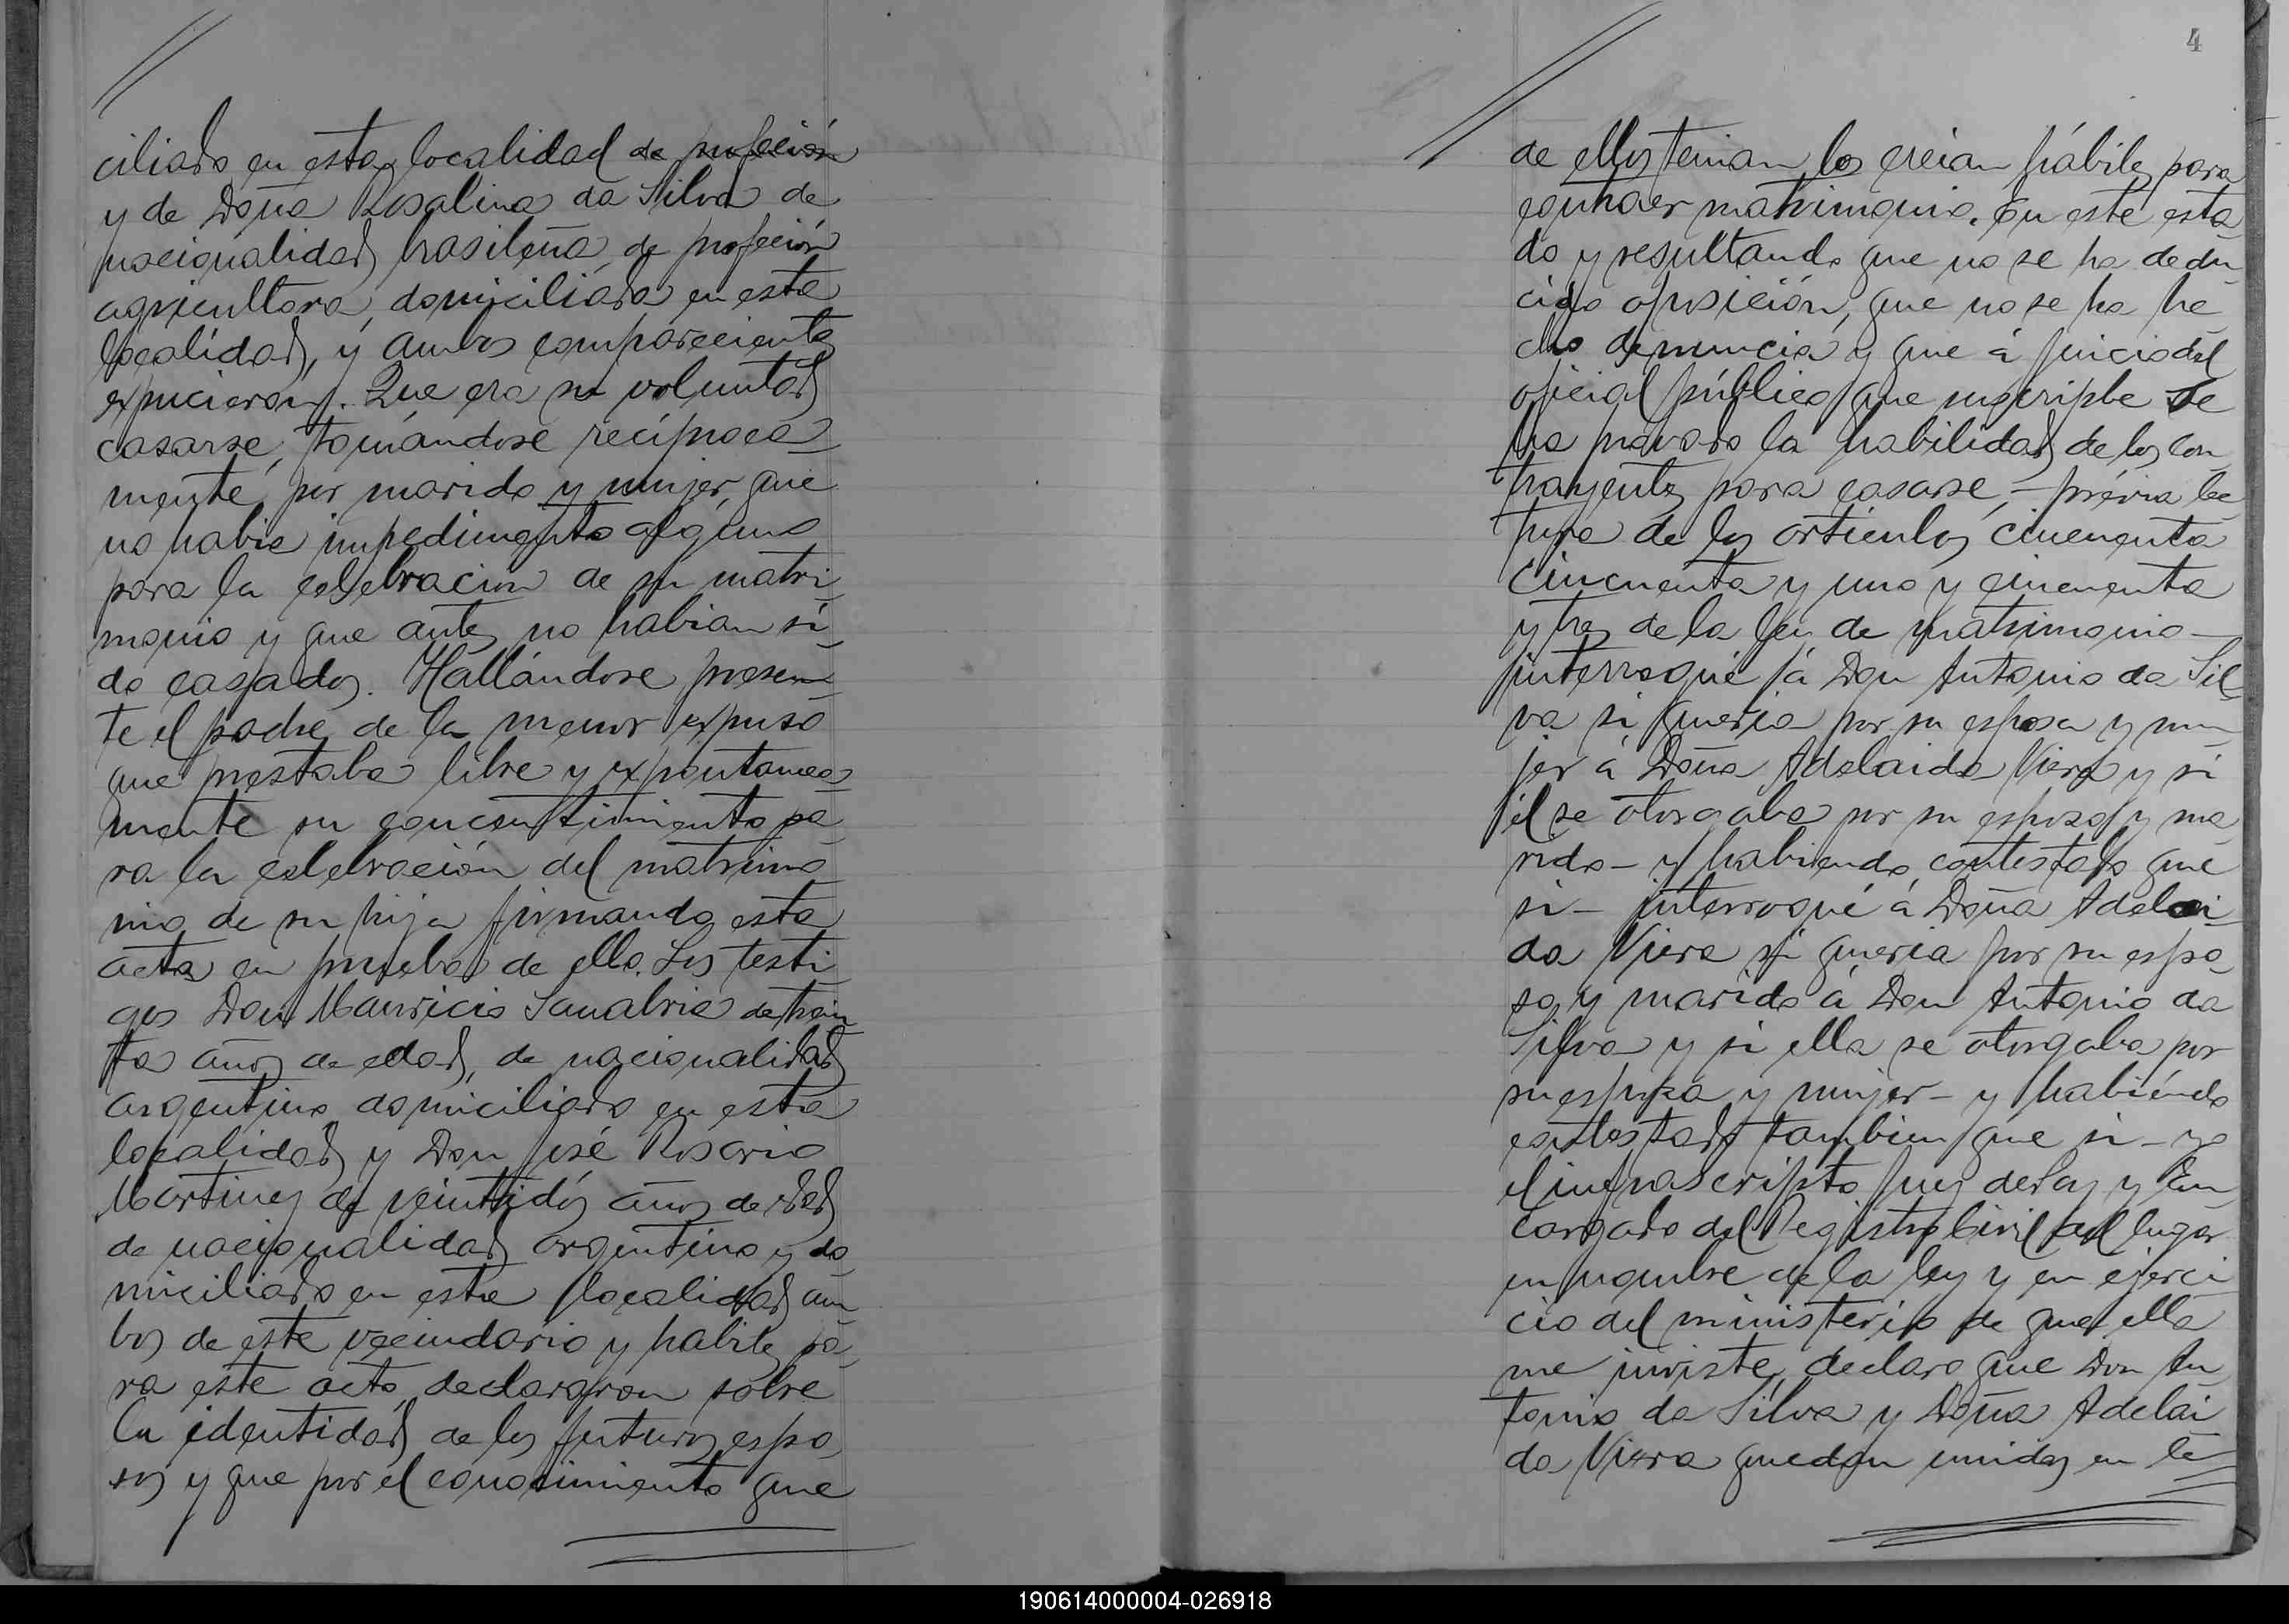 ciliado en esta localidad de profeción
y de Doña Rosalina da Silva de
nacionalidad brasileña, de profeción
agricultora, domiciliada en esta
localidad, y ambos comparecientes
expucieron. Que era su voluntad
casarse, tomándose recíproca
mente, por marido y mujer, que
no habia impedimento alguno
para la celebracion de su matri
monio y que antes no habian si
do casados. Hallándose presen
te el padre de la menor expuso
que prestaba libre y expontanea
mente su concentimiento pa
ra la celebración del matrimo
nio de su hija firmando esta
acta en prueba de ello. Los testi
gos Don Mauricio Sanabria de trein
ta años de edad, de nacionalidad
argentino domiciliado en esta
localidad y Don José Rosario
Martinez de veintidós años de edad
de nacionalidad argentino y do
miciliado en esta localidad am
bos de este vecindario y habiles pa
ra este acto, declararon sobre
la identidad de los futuros espo
sos y que por el conocimiento que
4
de ellos tenian los creian hábiles para
contraer matrimonio. En este esta
do y resultando que no se ha dedu
cido oposición, que no se ha he
cho denuncia y que á juicio del
oficial público que suscribe se
ha pravado la habilidad de los con
trayentes para casarse, - prévia lec
tura de los articulos cincuenta
cincuenta y uno y cincuenta
y tres de la ley de matrimonio -
interrogué á Don Antonio da Sil
va si queria por su esposa y mu
jer á Doña Adelaida Viera y si
él se otorgaba por su esposo y ma
rido - y habiendo contestado que
si - interrogué á Doña Adelai
da Viera si queria por su espo
so y marido á Don Antonio da
Silva y si ella se otorgaba por
su esposa y mujer - y habiéndo
contestado tambien que si - yo
el infrascripto Juez de Paz y En
cargado del Registro Civil del lugar
en nombre de la ley y en ejerci
cio del ministerio de que ella
me inviste, declaro que Don An
tonio da Silva y Doña Adelai
da Viera quedan unidos en le
190614000004-026918